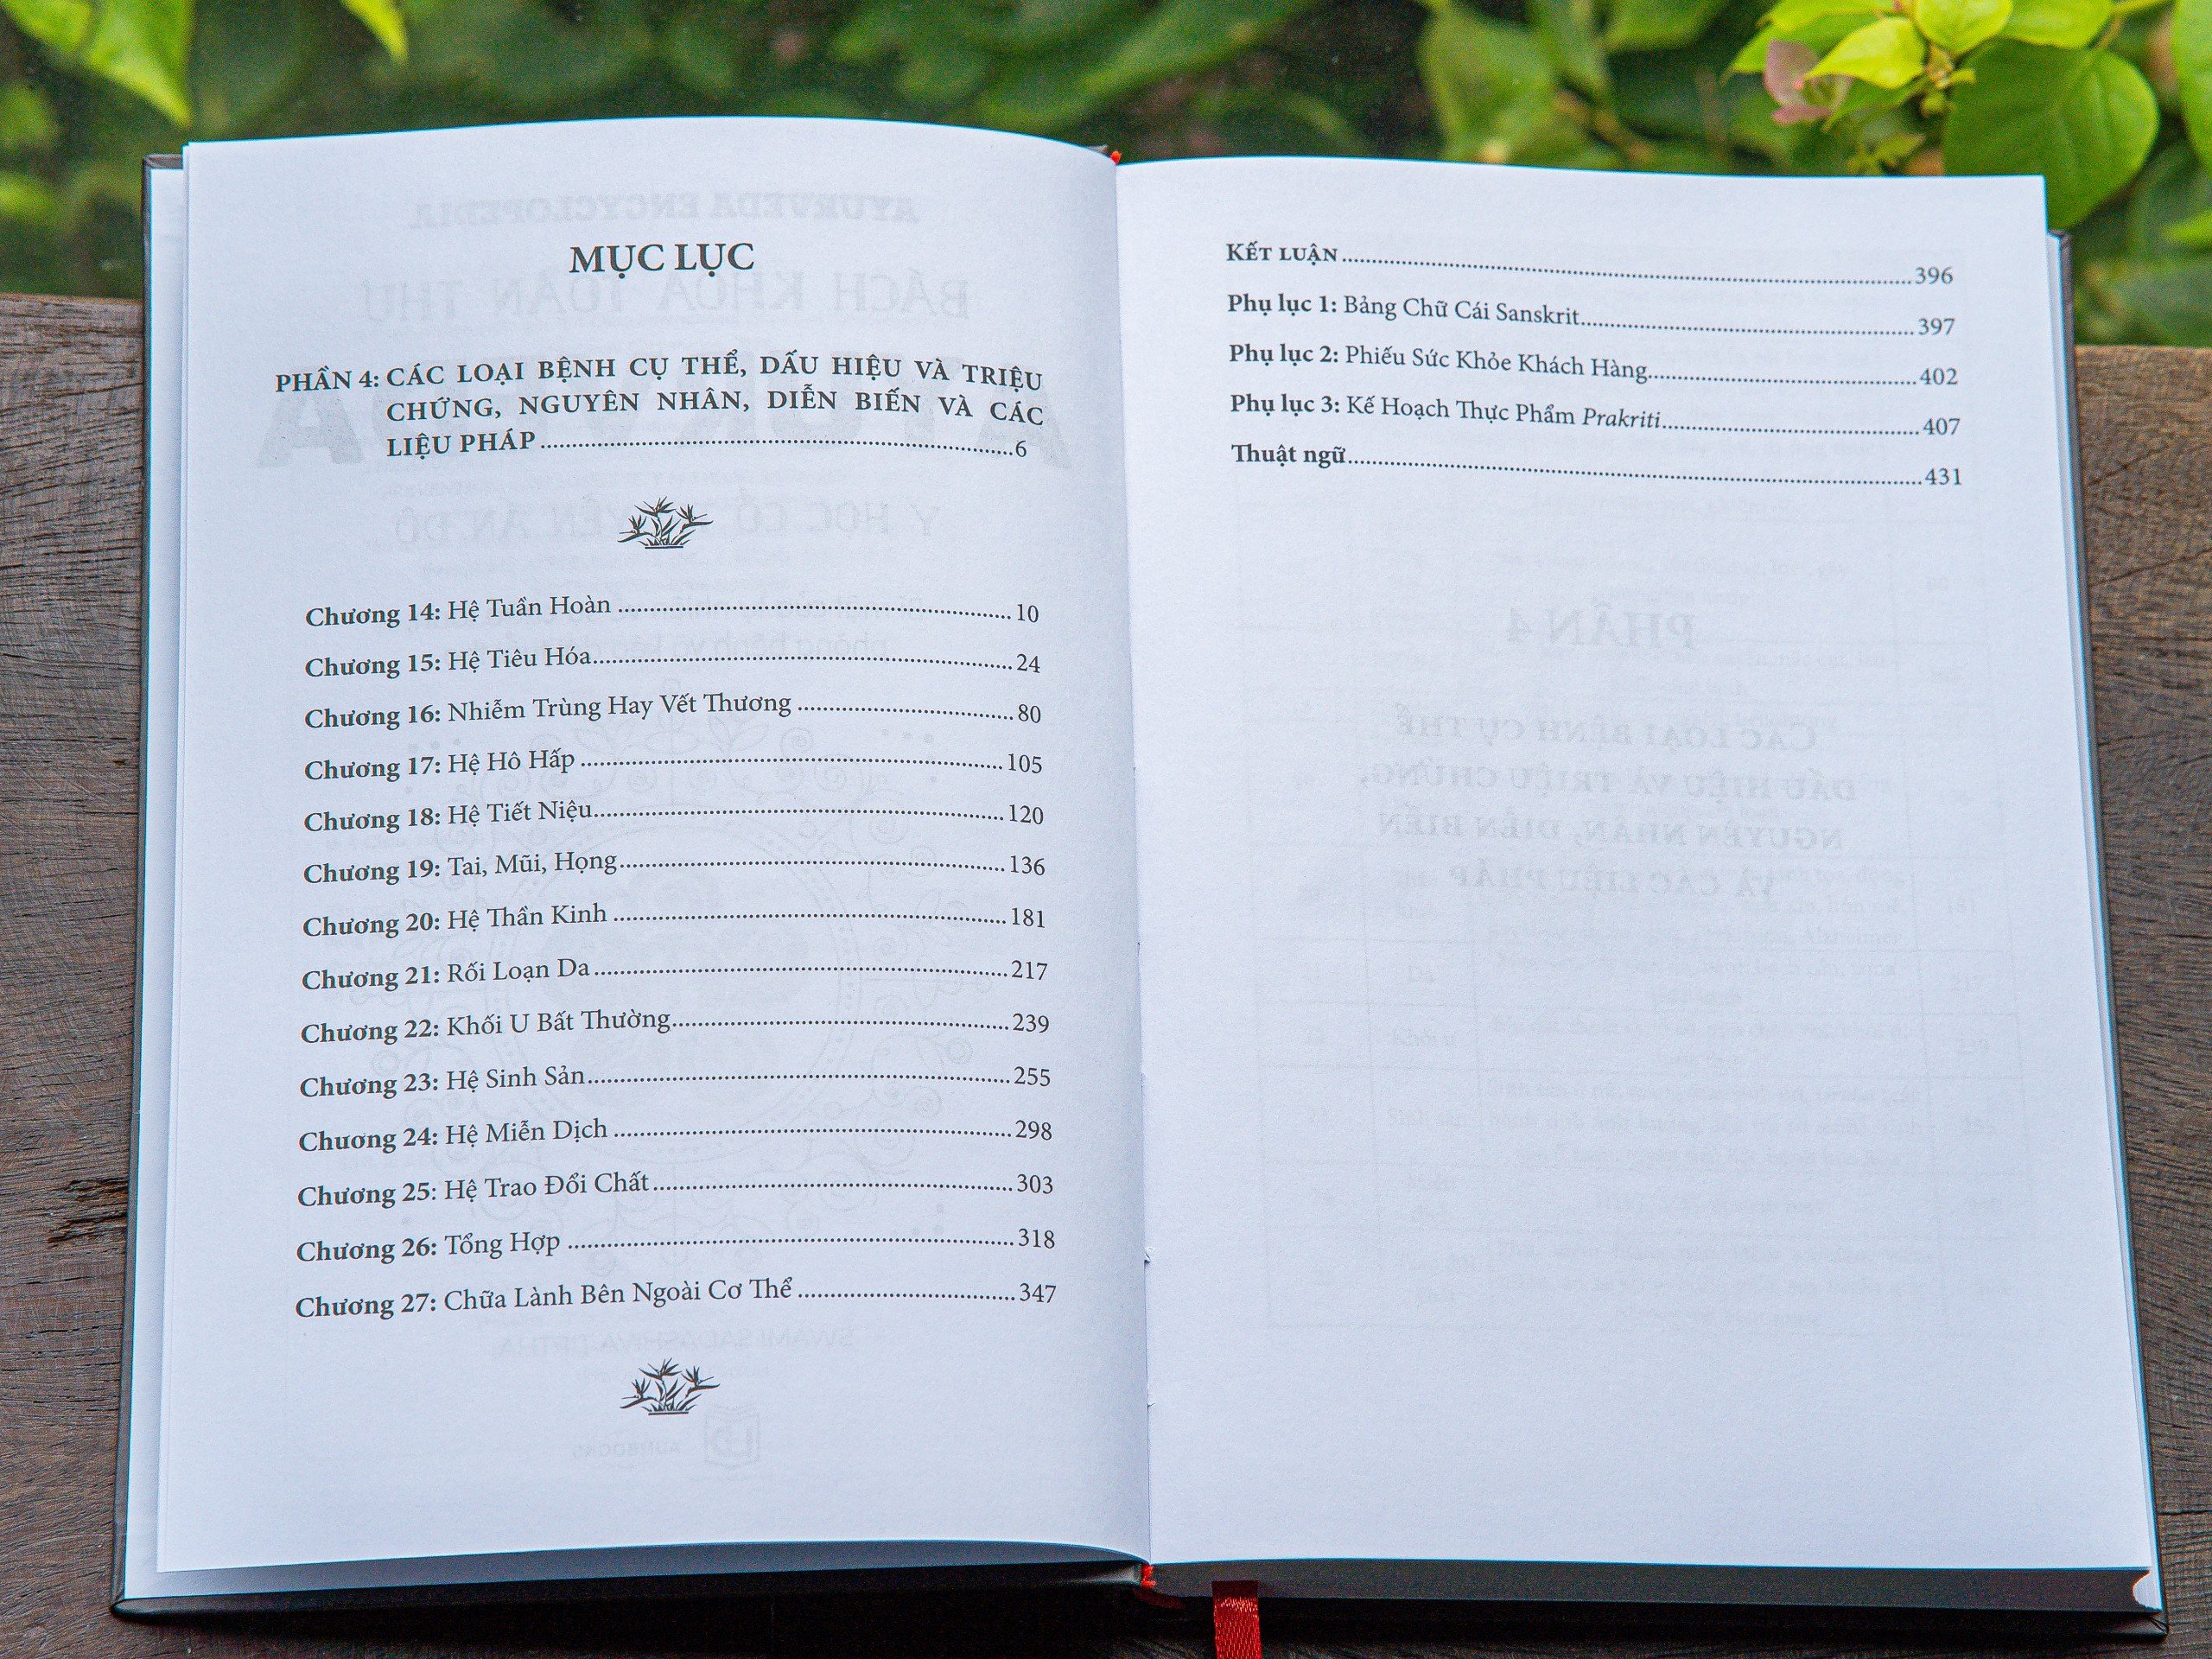 MỤC LỤC
PHẦN 4: CÁC LOẠI BỆNH CỤ THỂ, DẤU HIỆU VÀ TRIỆU
CHỨNG, NGUYÊN NHÂN, DIỄN BIẾN VÀ CÁC
LIỆU PHÁP 6
Chương 14: Hệ Tuần Hoàn 10
Chương 15: Hệ Tiêu Hóa 24
Chương 16: Nhiễm Trùng Hay Vết Thương 80
Chương 17: Hệ Hô Hấp 105
Chương 18: Hệ Tiết Niệu 120
Chương 19: Tai, Mũi, Họng 136
Chương 20: Hệ Thần Kinh 181
Chương 21: Rối Loạn Da 217
Chương 22: Khối U Bất Thường 239
Chương 23: Hệ Sinh Sản 255
Chương 24: Hệ Miễn Dịch 298
Chương 25: Hệ Trao Đổi Chất 303
Chương 26: Tổng Hợp 318
Chương 27: Chữa Lành Bên Ngoài Cơ Thể 347
KẾT LUẬN 396
Phụ lục 1: Bảng Chữ Cái Sanskrit 397
Phụ lục 2: Phiếu Sức Khỏe Khách Hàng 402
Phụ lục 3: Kế Hoạch Thực Phẩm Prakriti 407
Thuật ngữ 431